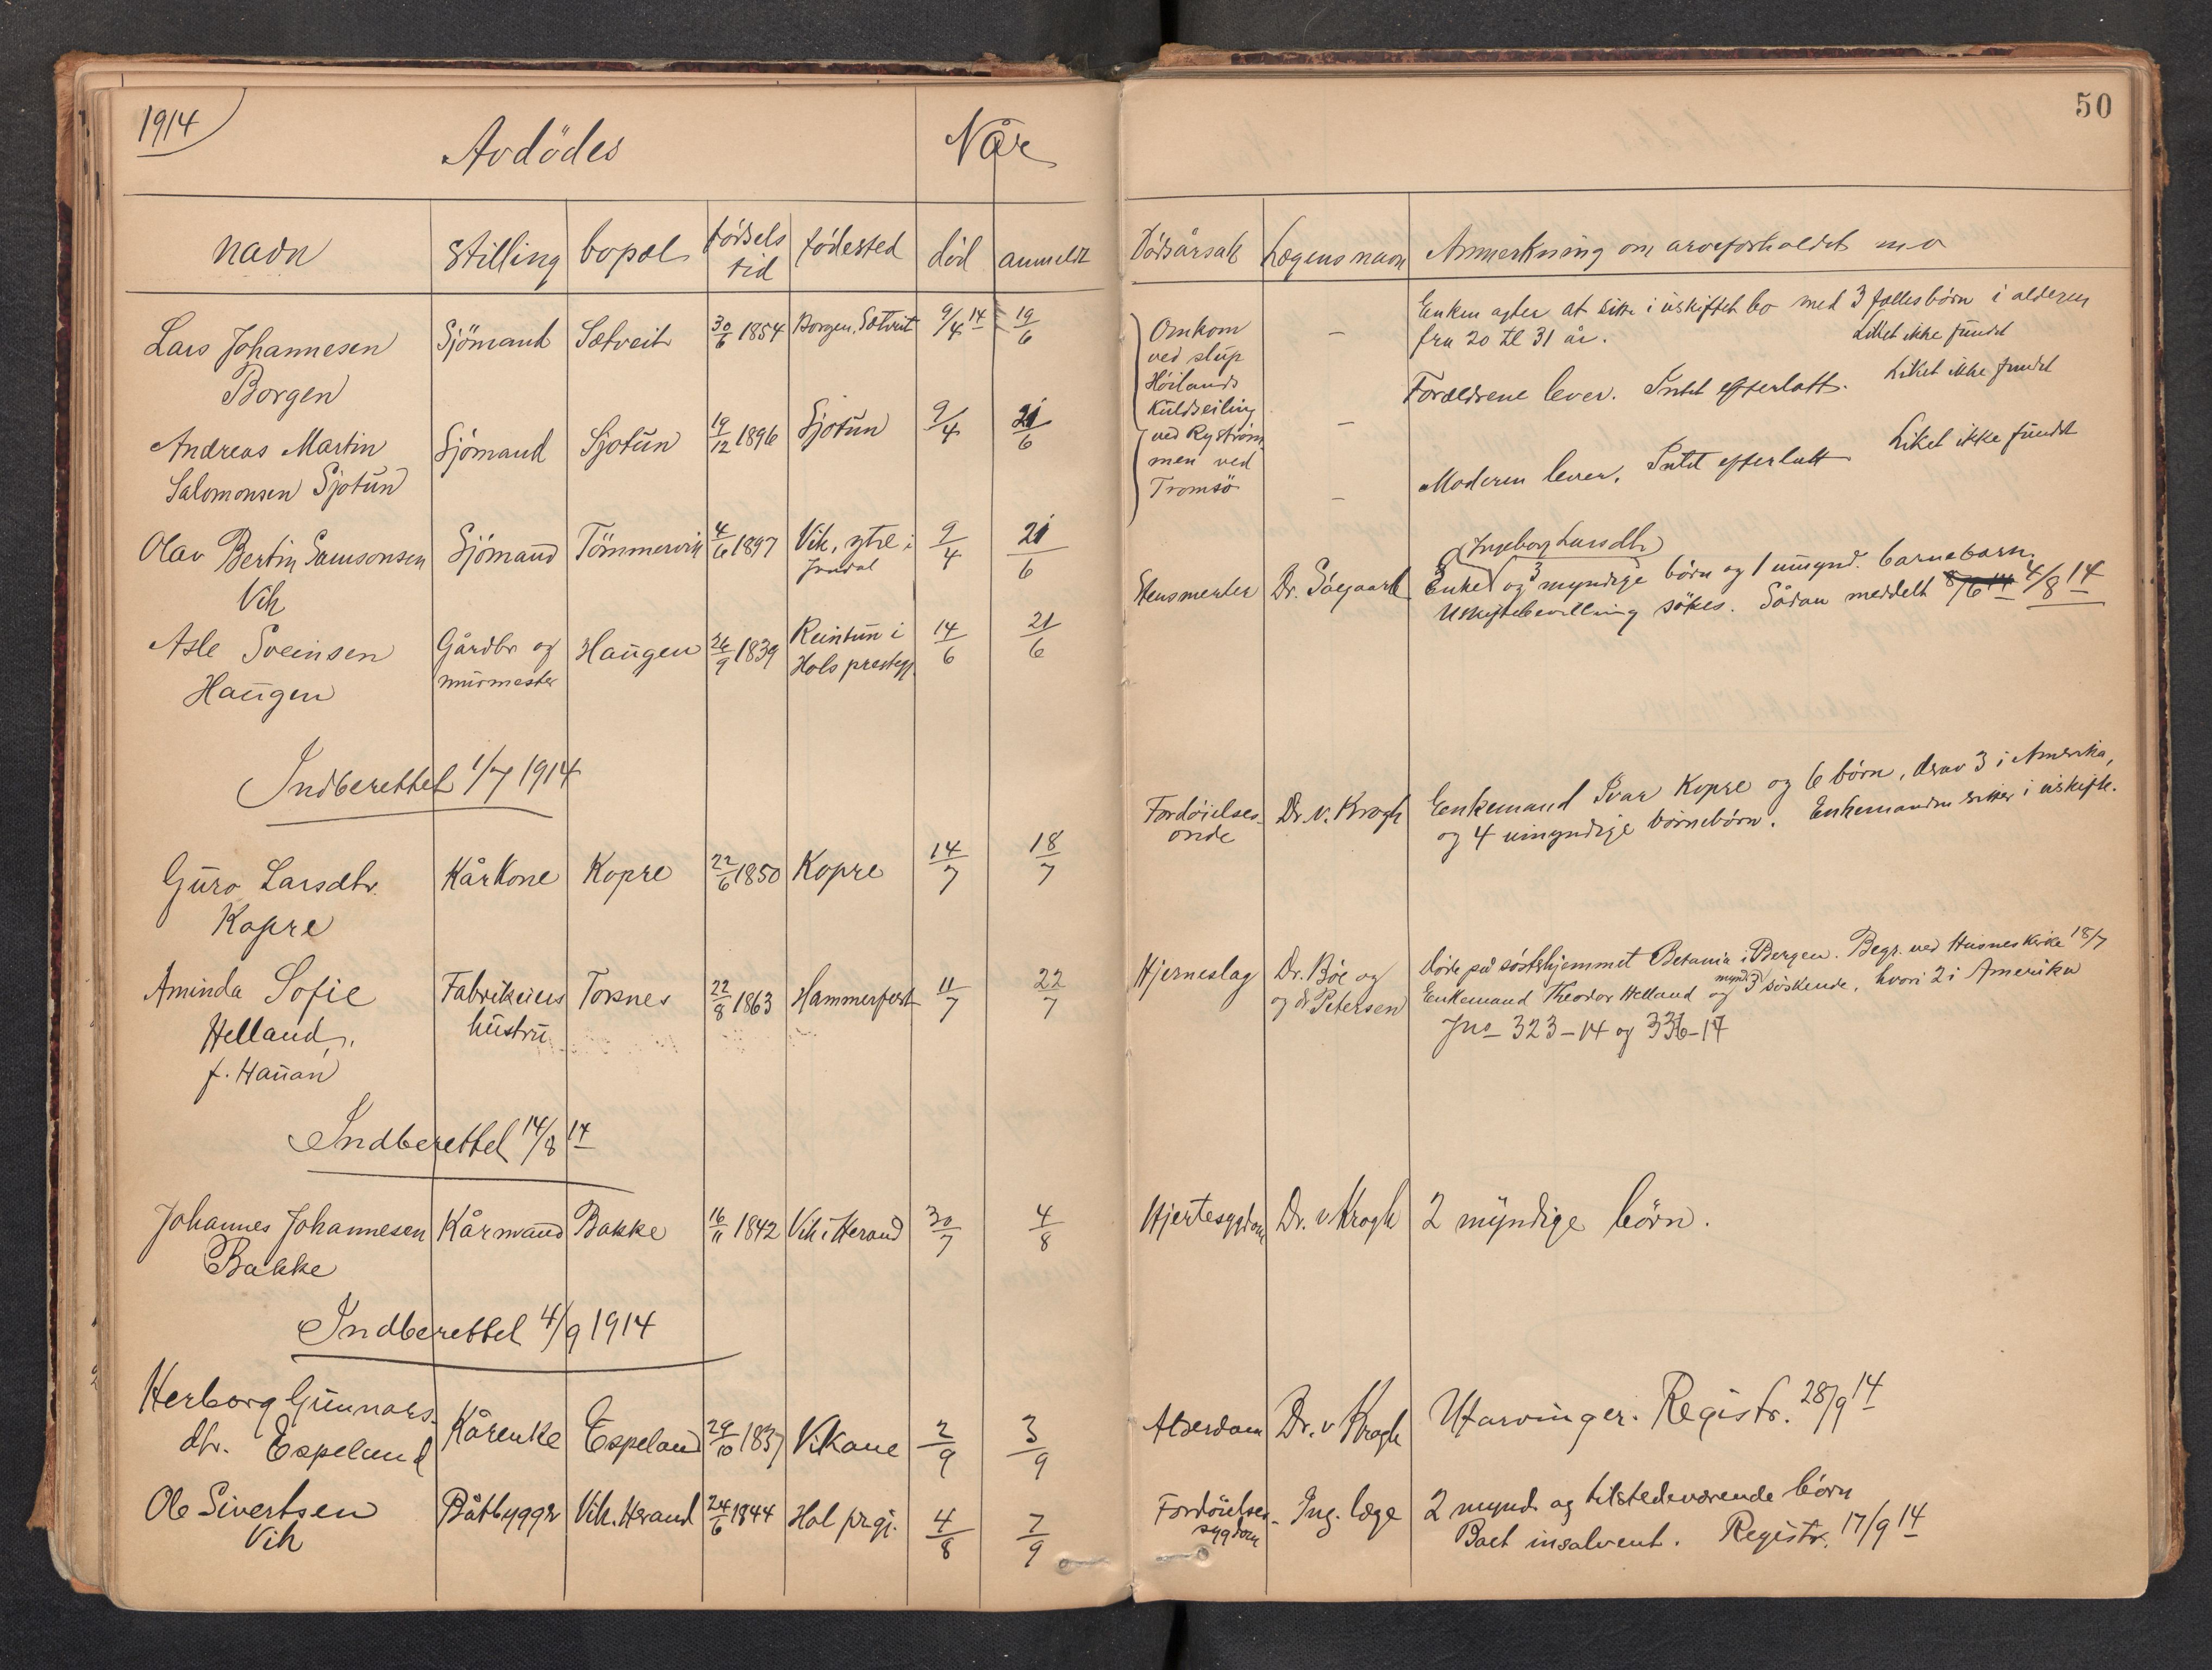 1914
50
Avdödes
Når
navn
Stilling
bopæl
födsels
tid
födested
död
anmeldt
Dödsårsak
Lægens navn
Anmerkning om arveforholdet m v
Lars Johannesen
Borgen
Sjömand
Sætveit
30/6 1854
Borgen, Sætveit
9/4 14
19/6
Omkom
ved slup
Höilands
Kuldseiling
ved Ryström
men ved
Tromsö
–
Enken agter at sitte i uskiftet bo med 3 fællesbörn i alderen
fra 20 til 31 år.
Liket ikke fundet
Andreas Martin
Salomonsen Sjotun
Sjömand
Sjotun
19/12 1896
Sjotun
9/4
21/6
–
Forældrene lever. Intet efterlatt.
Liket ikke fundet
Olav Bertin Samsonsen
Vik
Sjömand
Tömmervik
4/6 1897
Vik, ytre i
Jondal
9/4
21/6
–
Moderen lever. Intet efterlatt
Liket ikke fundet
Asle Sveinsen
Haugen
Gårdbr og
murmester
Haugen
26/9 1839
Reintun i
Hols prestegj.
14/6
21/6
Dr.
Ingeborg Larsdtr
Enke og 3 myndige börn og 1 umynd. barnebarn.
Uskiftebevilling sökes. Sådan meddelt 8/6 14 4/8 14
Indberettet 1/7 1914
Guro Larsdtr.
Kopre
Kårkone
Kopre
22/6 1850
Kopre
14/7
18/7
Fordöielses-
onde
Dr. v. Krogh
Enkemand Ivar Kopre og 6 börn, derav 3 i Amerika,
og 4 umyndige börnebörn. Enkemanden sitter i uskifte.
Aminda Sofie
Helland,
f. Hauan
Fabrikeiers
hustru
Torsnes
22/8 1863
Hammerfest
11/7
22/7
Hjerneslag
Dr. Böe og
og dr Petersen
Döde på söstrhjemmet Betania i Bergen. Begr. ved Husnes kirke 18/7
Enkemand Theodor Helland og mynd. 3 söskende, hvori 2 i Amerika
Jno 323–14 og 336–14
Indberettet 14/8 14
Johannes Johannesen
Bakke
Kårmand
Bakke
16/11 1842
Vik i Herand
30/7
4/8
Hjertesygdom
Dr. v Krogh
2 myndige börn.
Indberettet 4/9 1914
Herborg Gunnars-
dtr. Espeland
Kårenke
Espeland
29/10 1837
Vikane
2/9
3/9
Alderdom
Dr. v Krogh
Utarvinger. Registr. 28/9 14
Ole Sivertsen
Vik
Båtbygger
Vik, Herand
24/6 1844
Hol prgj.
4/8
7/9
Fordöielses-
sygdom
Ing. læge
2 mynd. og tilstedeværende börn
Boet insolvent. Registr. 17/9 14